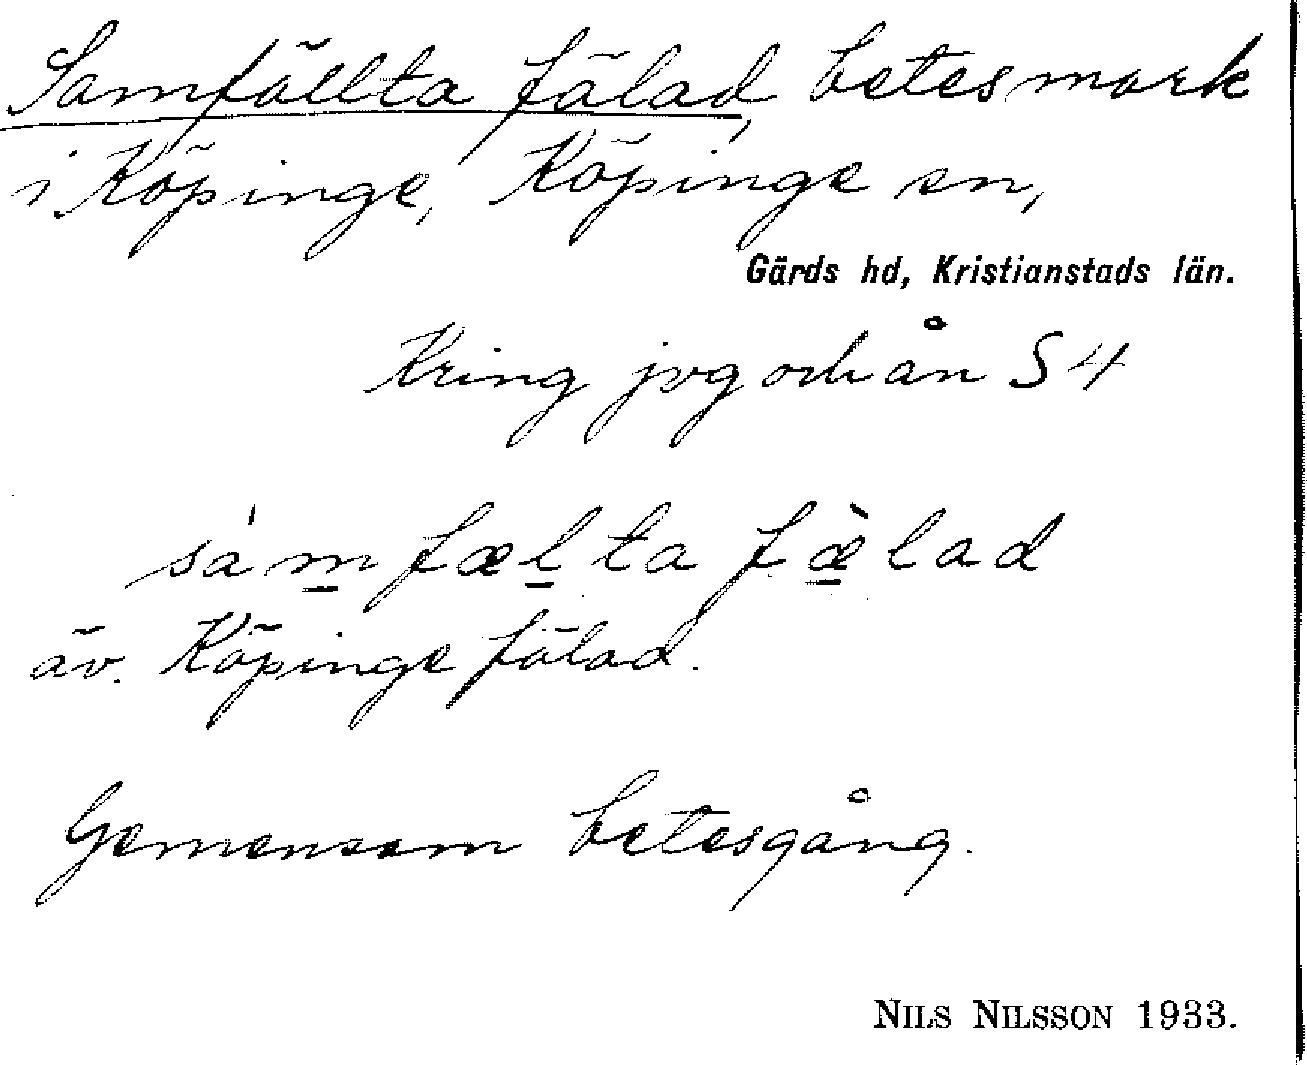 Samfällta fälad, betesmark
i Köpinge, Köpinge sn,
Gärds hd, Kristianstads län.
Kring jvg och ån S 4
sám̲fæl̲ta fæ̲̀lad
äv. Köpinge fälad.
Gemensam betesgång.
NILS NILSSON 1933.